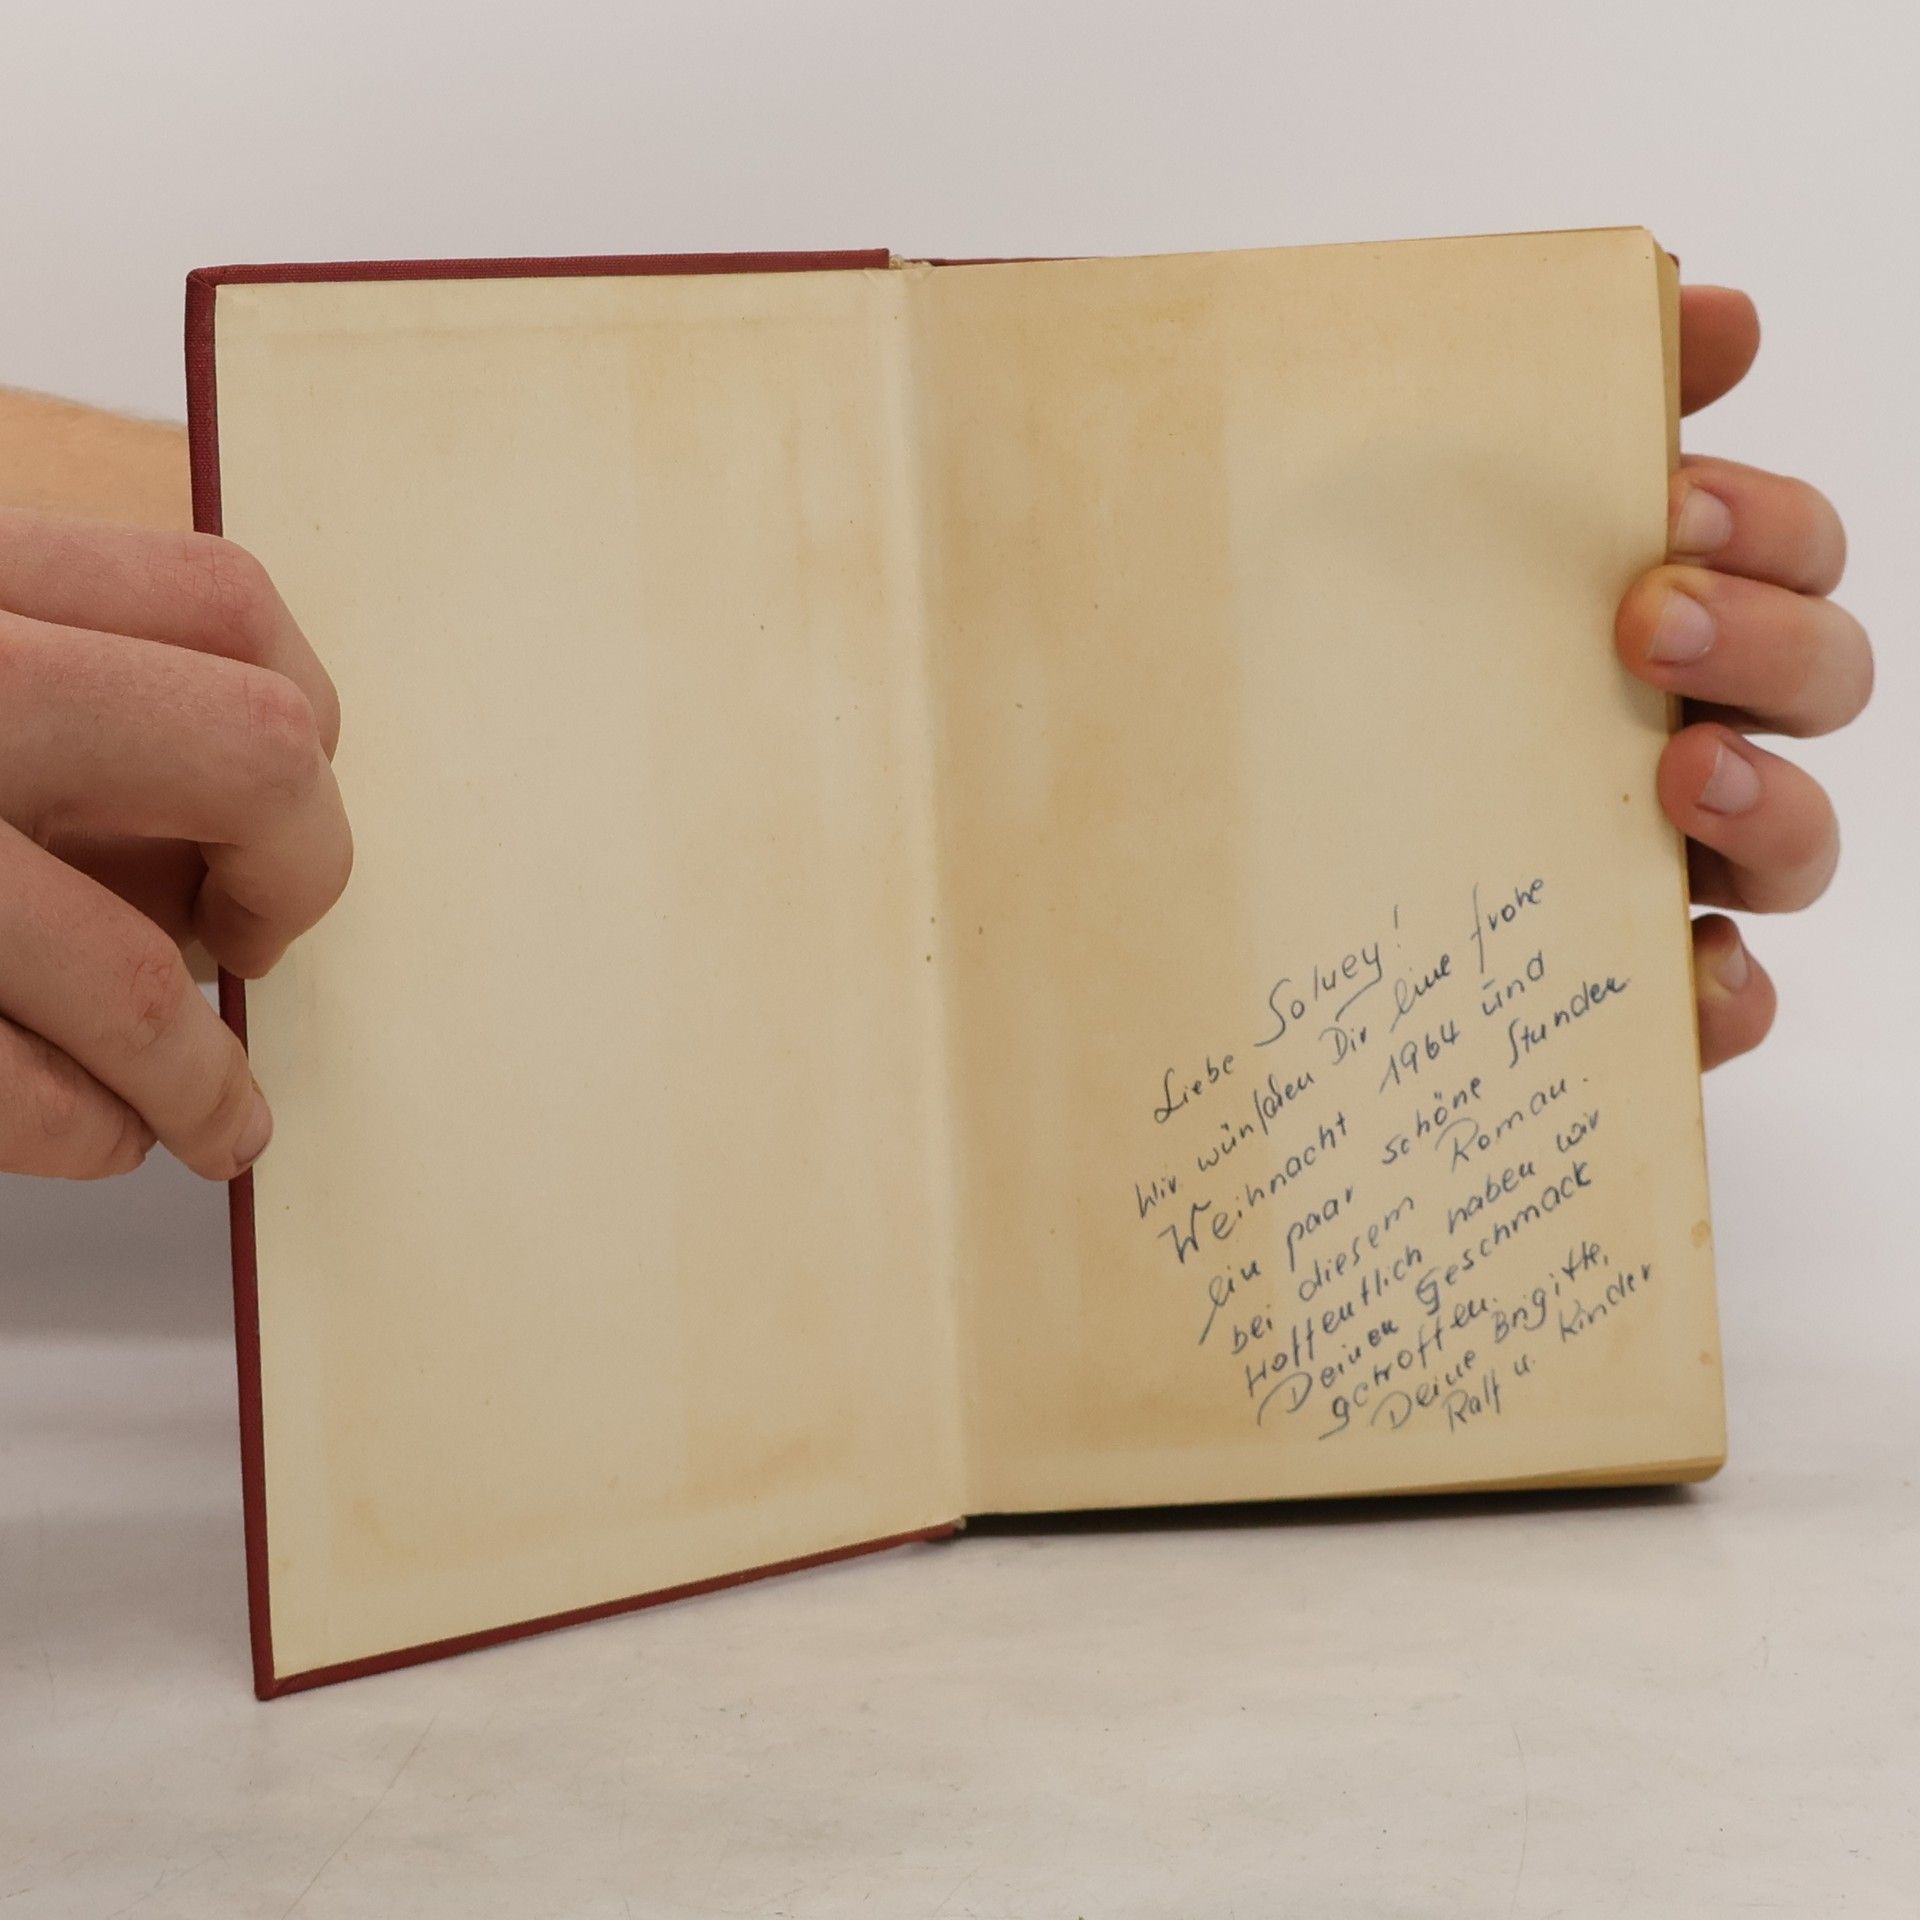 Liebe Solvey!
Wir wünschen Dir eine frohe
Weihnacht 1964 und
ein paar schöne Stunden
bei diesem Roman.
Hoffentlich haben wir
Deinen Geschmack
getroffen.
Deine Brigitte,
Ralf u. Kinder